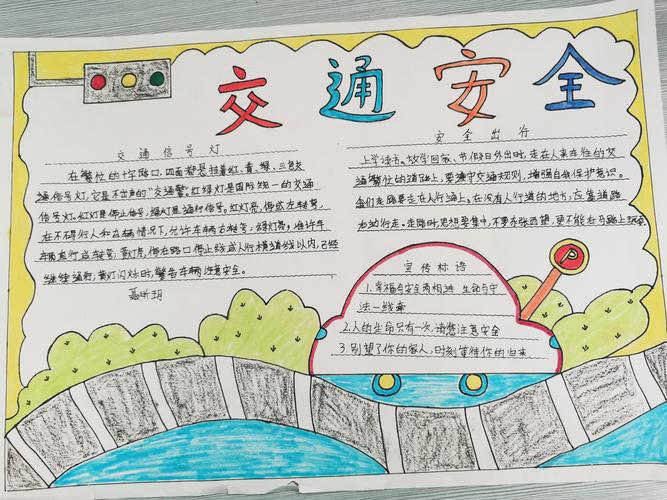 交通安全
交通信号灯
在繁忙的十字路口,四面都悬挂着红、黄、绿、三色交
通信号灯,它是不出声的“交通警”红绿灯是国际统一的交通
信号灯。红灯是停止信号,绿灯是通行信号。红灯亮,停或左转弯,
在不碍行人和车辆情况下,允许车辆右转弯;绿灯亮,准许车
车辆直行或转弯;黄灯亮,停在路口停止线或人行横道线以内,已经
继续通行;黄灯闪烁时,警告车辆注意安全。
聂昕玥
安全出行
上学读书、放学回家、节假日外出时,走在人来车往的交
通繁忙的道路上,要遵守交通规则,增强自我保护意识。
我们走路要走在人行道上。在没有人行道的地方,应靠道路
右边行走。走路时,思想要集中,不要东张西望,更不能在马路上玩耍
宣传标语
1.幸福与安全两相连 生命与守
法一线牵
2.人的生命只有一次,请您注意安全
3.别望了你的家人,时刻等待你的归来